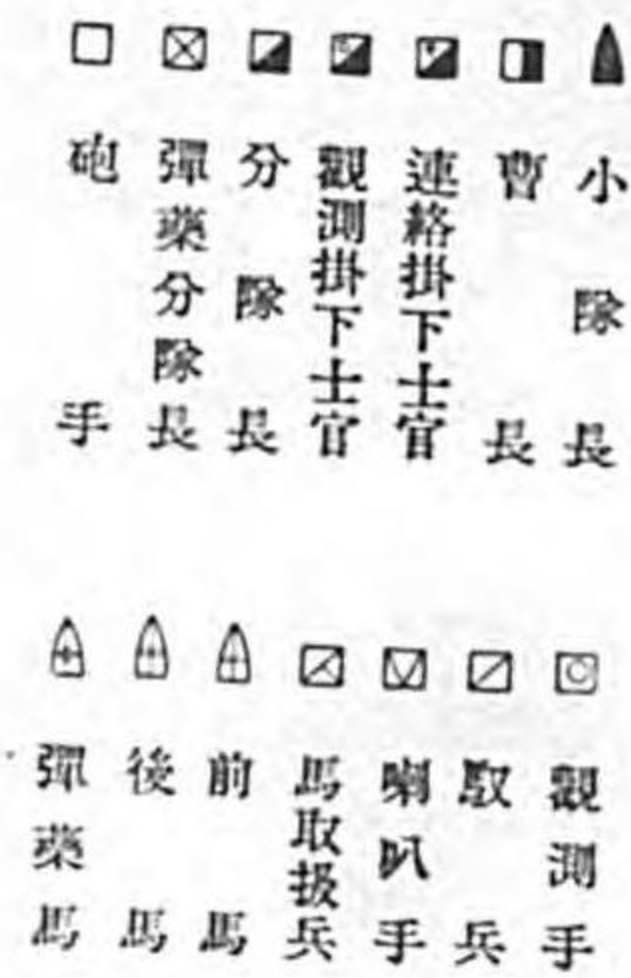 小隊長
曹長
連絡掛下士官
觀測掛下士官
分隊長
彈藥分隊長
砲手
觀測手
馭兵
喇叭手
馬取扱兵
前馬
後馬
彈藥馬